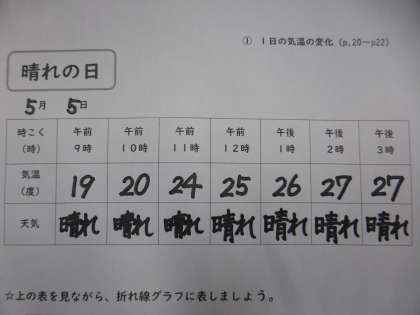 ① 1日の気温の変化（p.20～p22）
晴れの日
5月 5日
時こく（時） 午前9時 午前10時 午前11時 午前12時 午後1時 午後2時 午後3時
気温（度） 19 20 24 25 26 27 27
天気 晴れ 晴れ 晴れ 晴れ 晴れ 晴れ 晴れ
☆上の表を見ながら、折れ線グラフに表しましょう。